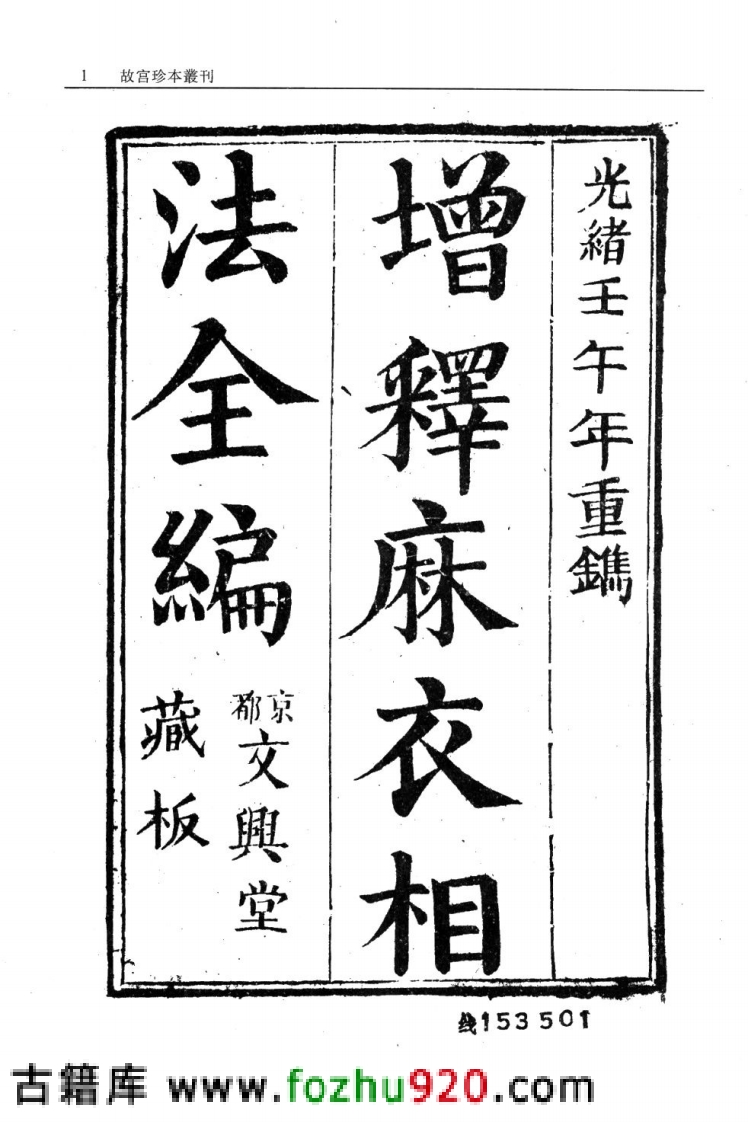 1 故宫珍本叢刊
光緒壬午年重鐫
增釋麻衣相
法全編
京都文興堂
藏板
线153501
古籍库 www.fozhu920.com